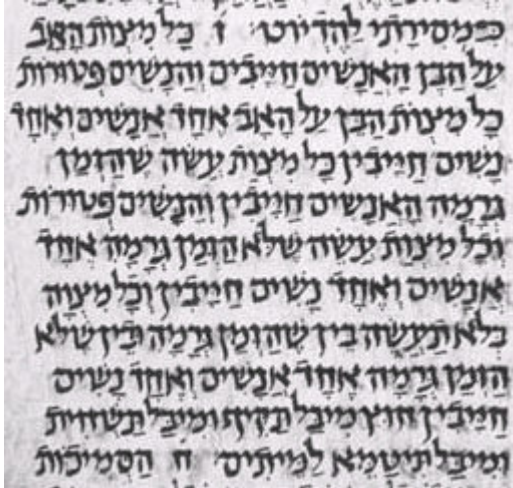 כמסירתי להדיוט׳ ז כל מצות האב
על הבן האנשים חייבים והנשים פטורות
כל מצות הבן על האב אחד אנשים ואחד
נשים חייבין כל מצות עשה שהזמן
גרמה האנשים חייבין והנשים פטורות
וכל מצות עשה שלא הזמן גרמה אחד
אנשים ואחד נשים חייבין וכל מצוה
בלא תעשה בין שהזמן גרמה ובין שלא
הזמן גרמה אחד אנשים ואחד נשים
חייבין חוץ מיבל תקיף ומיבל תשחית
ומיבל תיטמא למיתים׳ ח הסמיכות